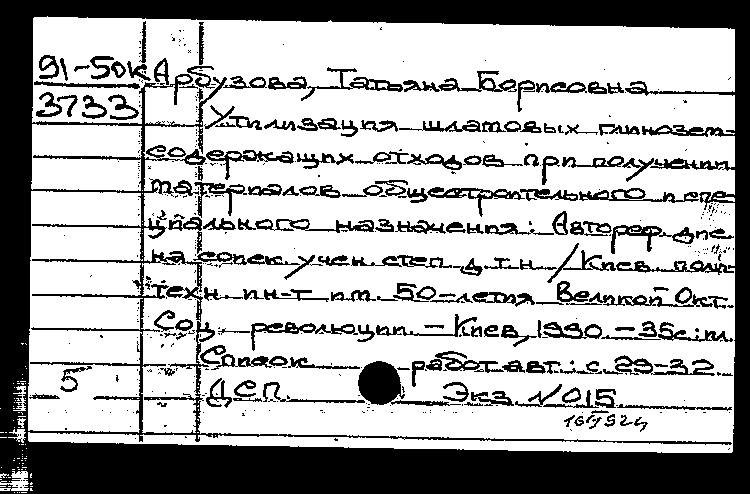 91-50к Арбузова, Татьяна Борисовна
3733 Утилизация шламовых глинозем-
содержащих отходов при получении
материалов общестроительного и спе-
циального назначения: Автореф. дис.
на соиск. учен. степ. д.т.н / Киев. поли-
техн. ин-т им. 50-летия Великой Окт.
Соц. революции. - Киев, 1990. - 35с.: ил.
Список работ авт.: с. 29-32
5 ДСП. Экз. N 015